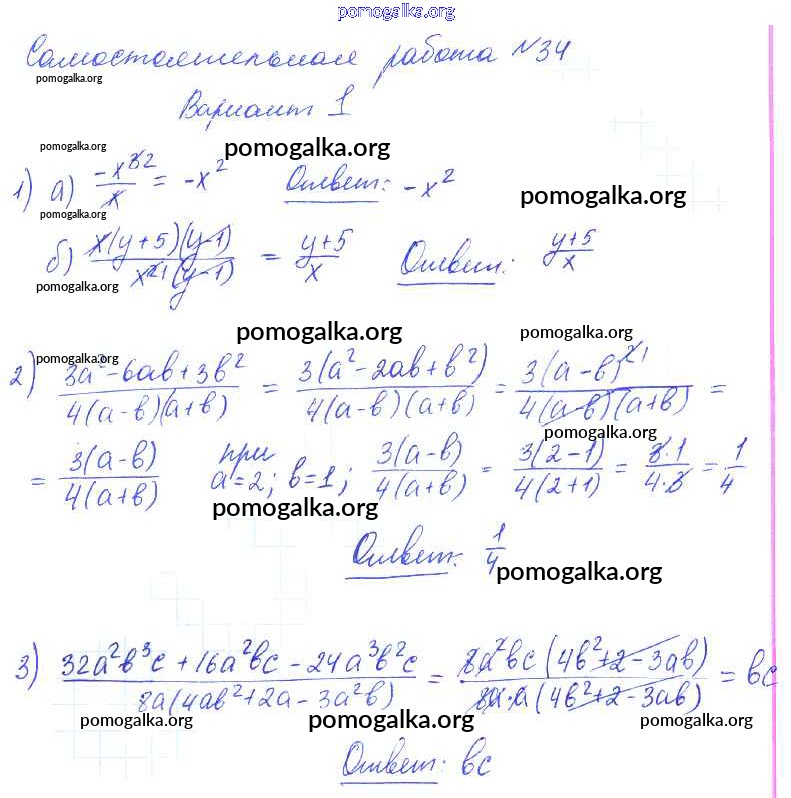 pomogalka.org
Самостоятельная работа №34
pomogalka.org
Вариант 1
pomogalka.org pomogalka.org
1) а) -x³²/x = -x² Ответ: -x²
pomogalka.org pomogalka.org
б) x(y+5)(y-1)/x²¹(y-1) = y+5/x Ответ: y+5/x
pomogalka.org
pomogalka.org pomogalka.org
pomogalka.org
2) 3a²-6ab+3b²/4(a-b)(a+b) = 3(a²-2ab+b²)/4(a-b)(a+b) = 3(a-b)²¹/4(a-b)(a+b) =
pomogalka.org
= 3(a-b)/4(a+b) при a=2; b=1; 3(a-b)/4(a+b) = 3(2-1)/4(2+1) = 3·1/4·3 = 1/4
pomogalka.org
Ответ: 1/4
pomogalka.org
3) 32a²b³c+16a²bc-24a³b²c/8a(4ab²+2a-3a²b) = 8a²bc(4b²+2-3ab)/8a·a(4b²+2-3ab) = bc
pomogalka.org pomogalka.org pomogalka.org
Ответ: bc